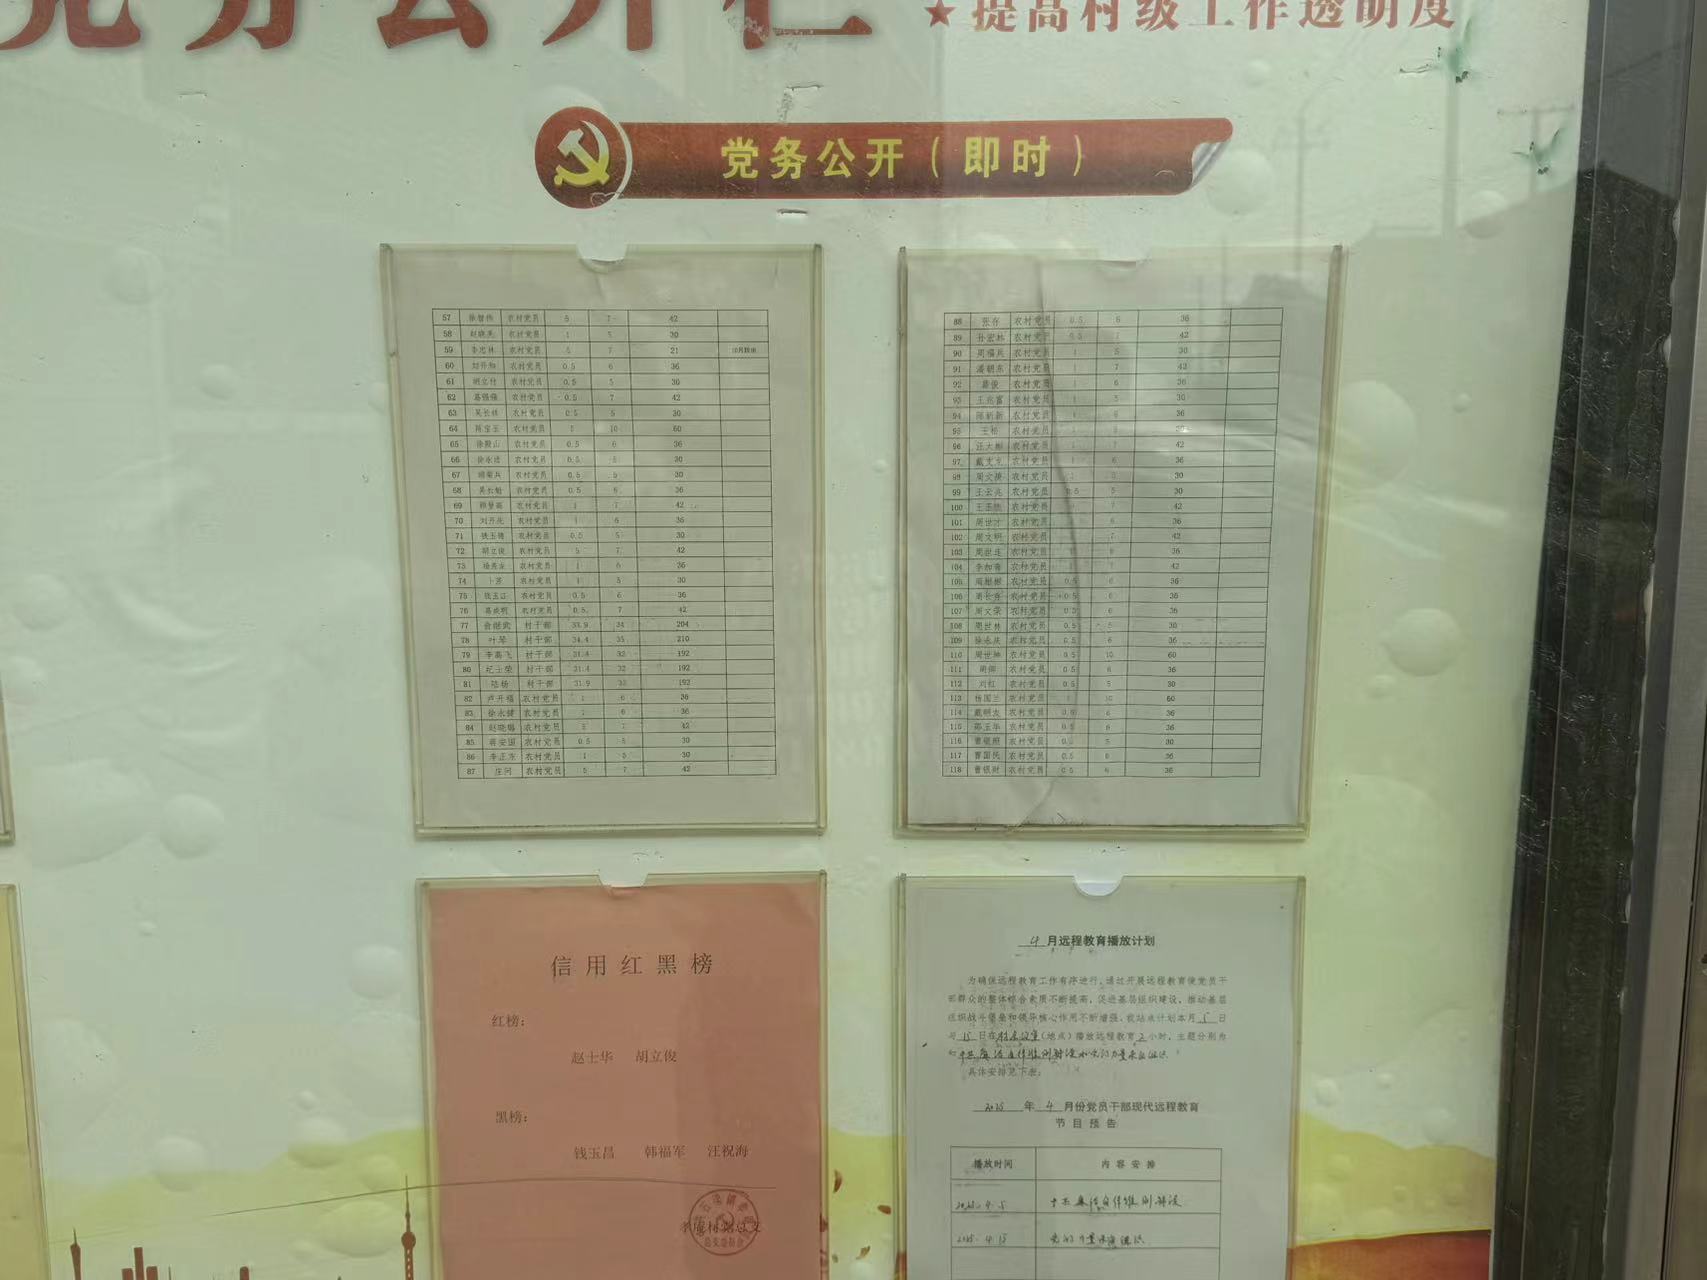 党务公开栏 ★提高村级工作透明度
党务公开（即时）
57 徐智伟 农村党员 5 7 42
58 赵晓亮 农村党员 1 5 30
59 李忠林 农村党员 5 7 21
60 刘开和 农村党员 0.5 6 36
61 胡立付 农村党员 0.5 5 30
62 葛强强 农村党员 0.5 7 42
63 吴长林 农村党员 0.5 5 30
64 陈宝玉 农村党员 5 10 60
65 徐殿山 农村党员 0.5 6 36
66 徐永进 农村党员 0.5 5 30
67 农村党员 0.5 5 30
68 吴长魁 农村党员 0.5 6 36
69 农村党员 1 7 42
70 刘开先 农村党员 1 6 36
71 钱玉德 农村党员 0.5 5 30
72 胡立俊 农村党员 5 7 42
73 农村党员 1 6 36
74 卜苏 农村党员 1 5 30
75 钱玉江 农村党员 0.5 6 36
76 葛成明 农村党员 0.5 7 42
77 俞继武 村干部 33.9 34 204
78 叶琴 村干部 34.4 35 210
79 李高飞 村干部 31.4 32 192
80 纪士荣 村干部 31.4 32 192
81 陆杨 村干部 31.9 32 192
82 卢开福 农村党员 1 6 36
83 徐永健 农村党员 1 6 36
84 赵晓娟 农村党员 5 7 42
85 蒋安国 农村党员 0.5 5 30
86 李正东 农村党员 1 5 30
87 庄问 农村党员 5 7 42
88 张存 农村党员 0.5 6 36
89 孙宏林 农村党员 0.5 7 42
90 周福兵 农村党员 1 5 30
91 潘朝东 农村党员 1 7 42
92 葛俊 农村党员 1 6 36
93 王兆富 农村党员 1 5 30
94 陈新新 农村党员 1 6 36
95 王松 农村党员 30
96 汪大彬 农村党员 1 7 42
97 戴支龙 农村党员 1 6 36
98 周文 农村党员 30
99 王云兆 农村党员 0.5 5 30
100 王玉 农村党员 7 42
101 周世才 农村党员 6 36
102 周文明 农村党员 7 42
103 周世连 农村党员 6 36
104 李加青 农村党员 7 42
105 周彬彬 农村党员 0.5 6 36
106 周长存 农村党员 0.5 6 36
107 周文荣 农村党员 0.5 6 36
108 周世林 农村党员 0.5 5 30
109 徐永庆 农村党员 0.5 6 36
110 周世坤 农村党员 0.5 10 60
111 周俯 农村党员 0.5 6 36
112 刘红 农村党员 0.5 5 30
113 杨国兰 农村党员 1 10 60
114 戴明友 农村党员 0.5 6 36
115 邵玉华 农村党员 0.5 6 36
116 曹银照 农村党员 0.5 5 30
117 曹国民 农村党员 0.5 6 36
118 曹银财 农村党员 0.5 6 36
信用红黑榜
红榜：
赵士华 胡立俊
黑榜：
钱玉昌 韩福军 汪祝海
4月远程教育播放计划
为确保远程教育工作有序进行，通过开展远程教育使党员干
部群众的整体综合素质不断提高，促进基层组织建设，推动基层
组织战斗堡垒和领导核心作用不断增强，我站点计划本月5日
与15日在（地点）播放远程教育2小时，主题分别为
具体安排见下表：
2025年4月份党员干部现代远程教育
节目预告
播放时间 内容安排
2025.4.5
2025.4.15 党的力量来自组织